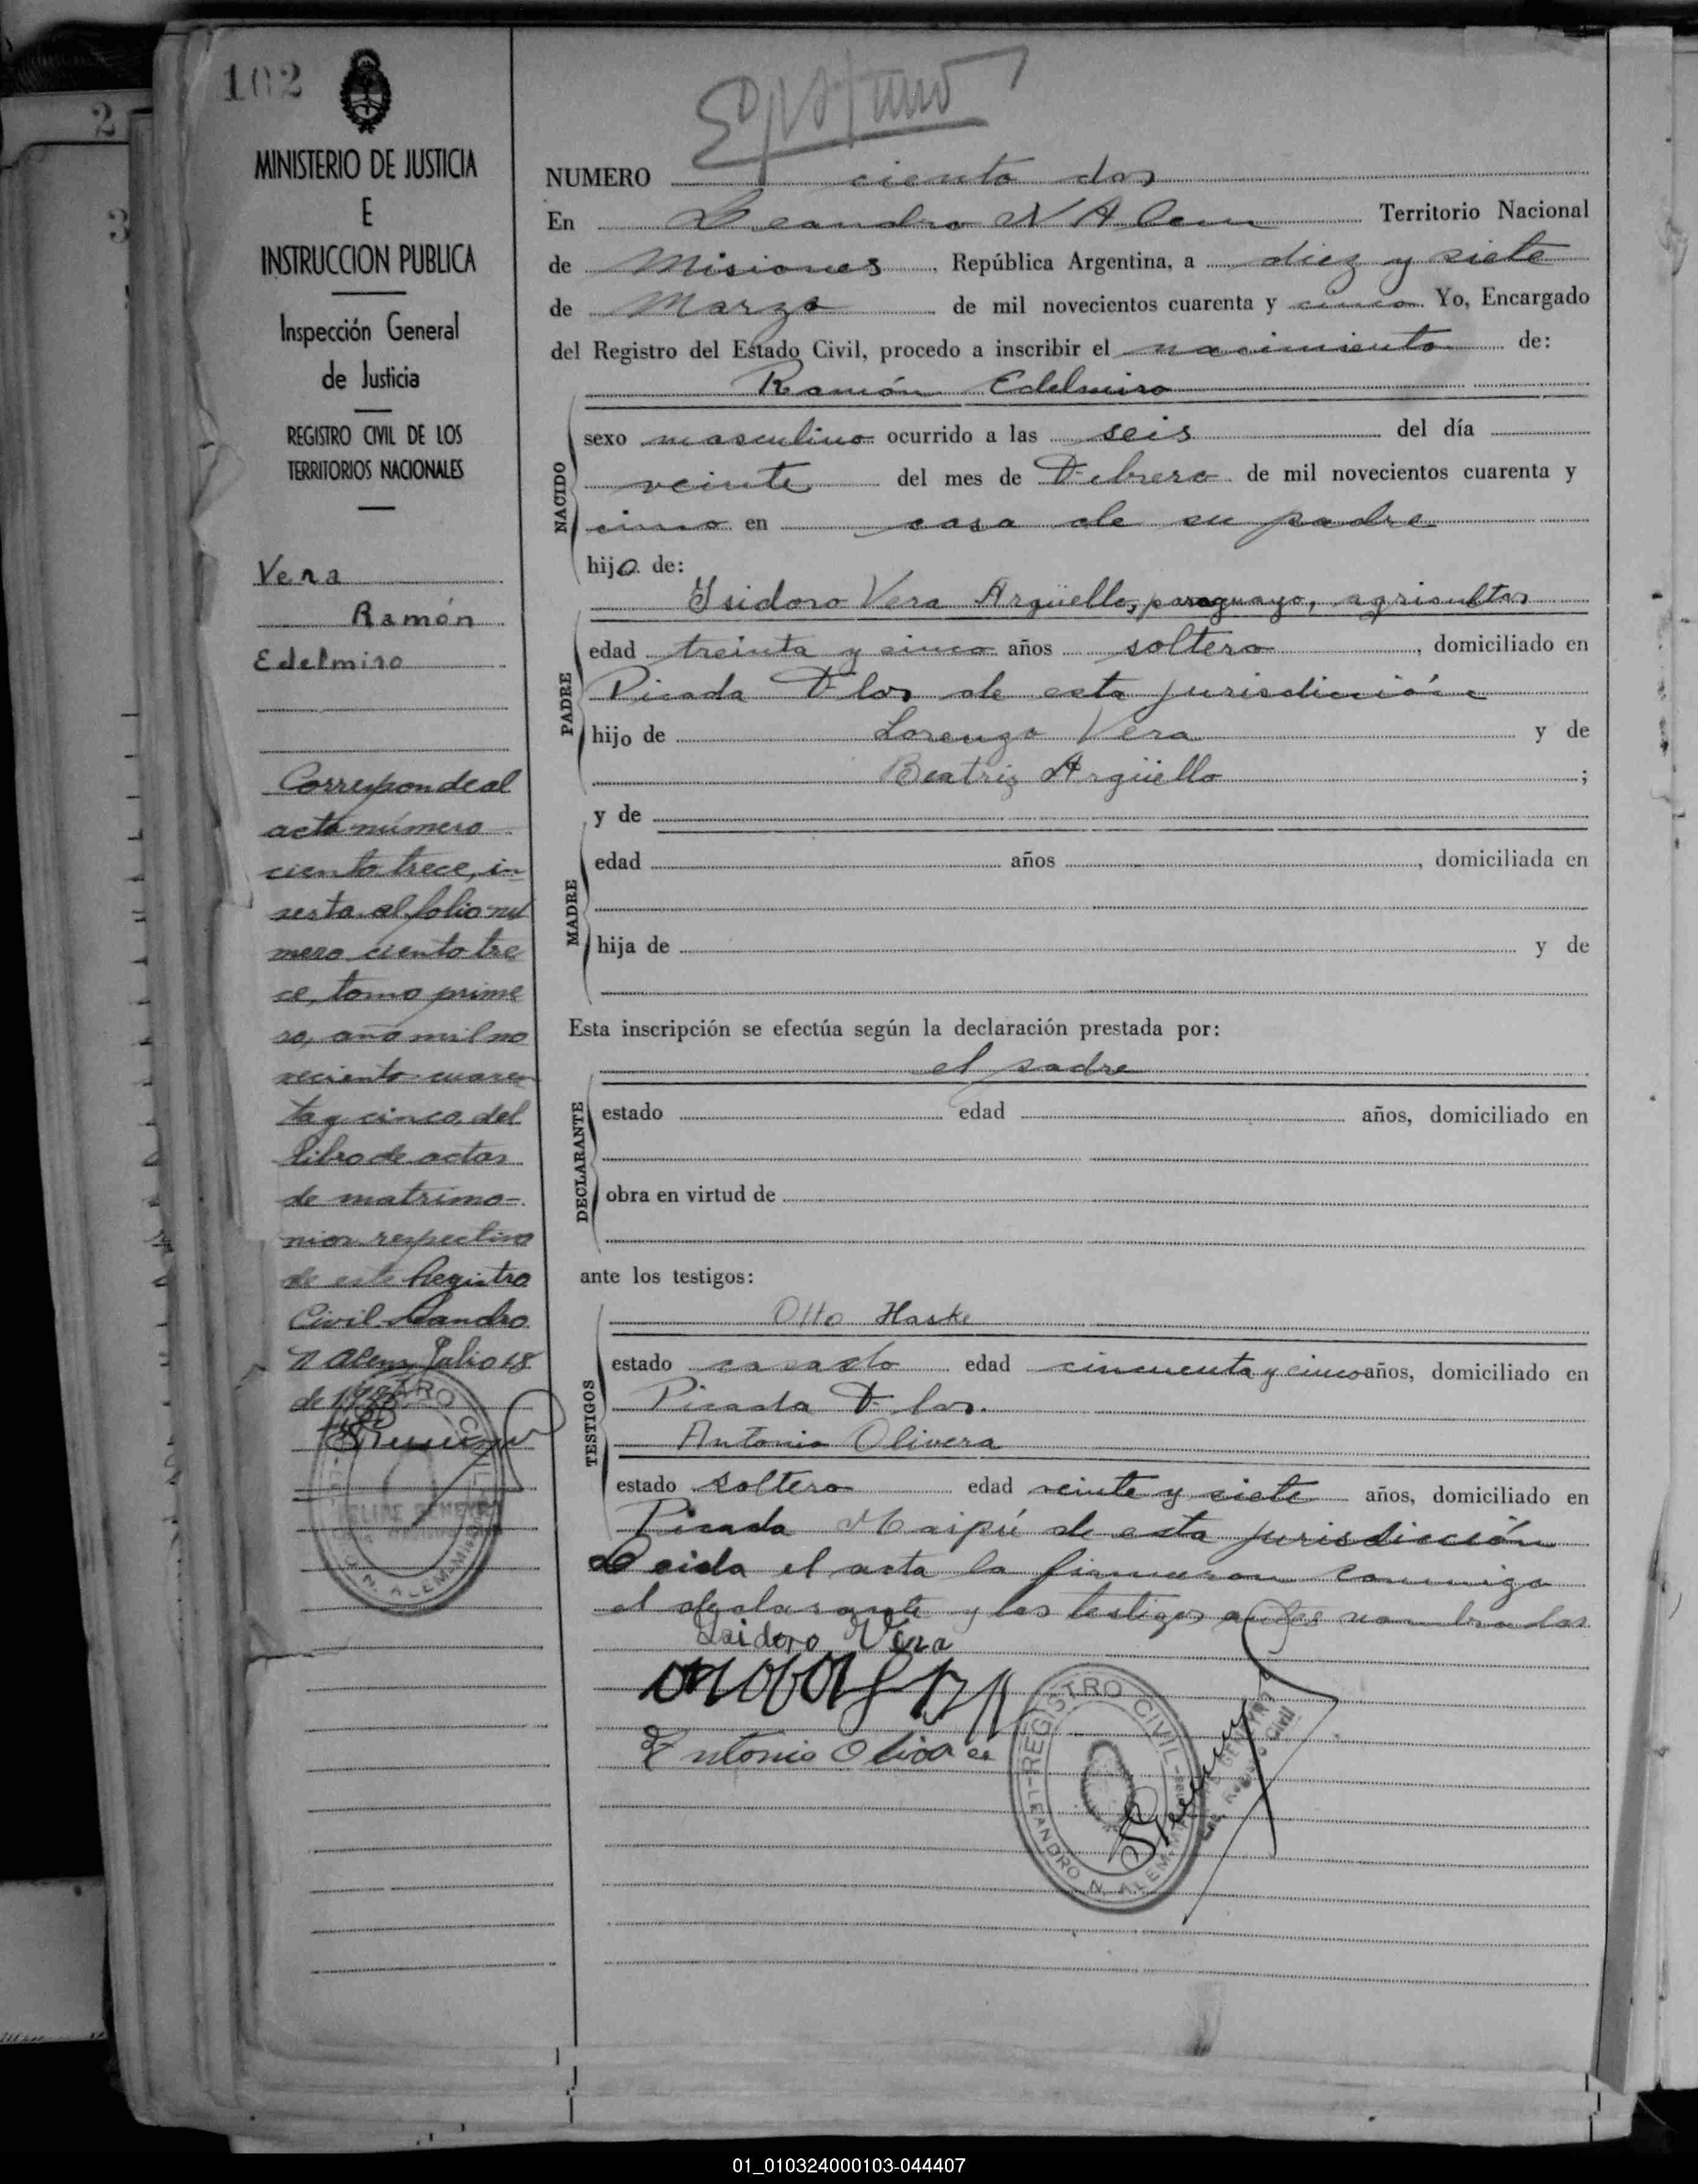 102
MINISTERIO DE JUSTICIA
E
INSTRUCCION PUBLICA
Inspección General
de Justicia
REGISTRO CIVIL DE LOS
TERRITORIOS NACIONALES
Vera
Ramón
Edelmiro
Corresponde al
acta número
ciento trece, in-
serta al folio nú
mero ciento tre
ce, tomo prime
ro, año mil no
veciento cuaren
ta y cinco, del
libro de actas
de matrimo-
nios respectivo
de este Registro
Civil. Leandro
N Alem, Julio 18
de
NUMERO ciento dos
En Leandro N Alem Territorio Nacional
de Misiones, República Argentina, a diez y siete
de Marzo de mil novecientos cuarenta y cinco Yo, Encargado
del Registro del Estado Civil, procedo a inscribir el nacimiento de:
Ramón Edelmiro
NACIDO
sexo masculino ocurrido a las seis del día
veinte del mes de Febrero de mil novecientos cuarenta y
cinco en casa de su padre
hijo de:
PADRE
Isidoro Vera Argüello, paraguayo, agricultor
edad treinta y cinco años soltero, domiciliado en
Picada Flor de esta jurisdicción
hijo de Lorenzo Vera y de
Beatriz Argüello;
MADRE
y de
edad años, domiciliada en
hija de y de
Esta inscripción se efectúa según la declaración prestada por:
el padre
DECLARANTE
estado edad años, domiciliado en
obra en virtud de
ante los testigos:
TESTIGOS
Otto Haske
estado casado edad cincuenta y cinco años, domiciliado en
Picada Flor.
Antonio Olivera
estado soltero edad veinte y siete años, domiciliado en
Picada Maipú de esta jurisdicción
Leida el acta la firmaron conmigo
el declarante y los testigos antes nombrados
Isidoro Vera
Antonio Olivera
REGISTRO CIVIL
LEANDRO N. ALEM
01_010324000103-044407